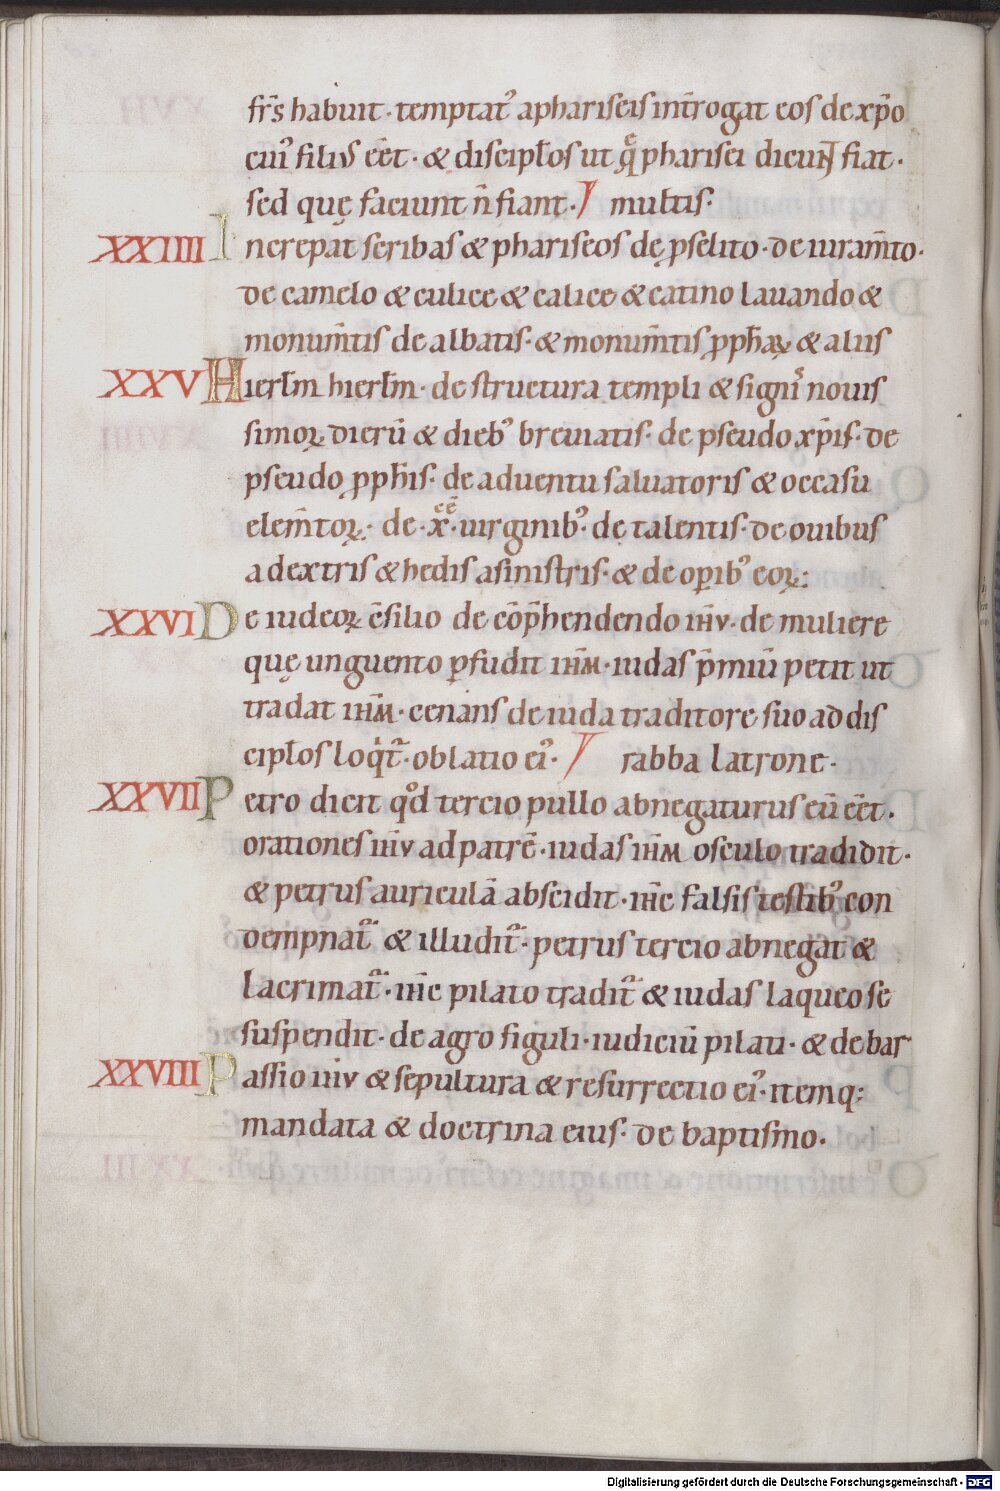 fr̄s habuit · temptat᷒ aphariseis int̄rogat eos de xp̄o
cui᷒ filius ēēt · & discipl̄os ut q̨ pharisei dicunt fiat ·
sed quę faciunt n̄ fiant · multis ·
XXIIII Increpat scribas & phariseos de ꝓselito · de iuram̄to ·
de camelo & culice & calice & catino lauando &
monum̄tis de albatis · & monum̄tis ꝓph̄aꝝ & aliis
XXV Hierl̄m hierl̄m · de structura templi & signis nouis
simoꝝ dierū & dieb᷒ breuiatis · de pseudo xp̄is · de
pseudo ꝓph̄is · de aduentu saluatoris & occasu
elem̄toꝝ · de · x̄ · uirginib᷒ · de talentis · de ouibus
a dextris & hedis asinistris · & de oꝑib᷒ eoꝝ :
XXVI De iudeoꝝ c̄silio de cōp̄hendendo ih̄v · de muliere
quę unguento ꝑfudit ih̄m · iudas p̄miū petit ut
tradat ih̄m · cenans de iuda traditore suo ad dis
cipl̄os loqit̄ · oblatio ei᷒ · rabba latrone ·
XXVII Petro dicit qd tercio pullo abnegaturus eū ēēt ·
orationes ih̄v ad patrē · iudas ih̄m osculo tradidit ·
& petrus auriculā abscidit · ih̄c falsis testib᷒ con
dempnat̄ & illudit̄ · petrus tercio abnegat &
lacrimat̄ · ih̄c pilato tradit̄ & iudas laqueo se
suspendit · de agro figuli · iudiciū pilati · & de bar
XXVIII Passio ih̄v & sepultura & resurrectio ei᷒ · itemq;
mandata & doctrina eius · de baptismo ·
Digitalisierung gefördert durch die Deutsche Forschungsgemeinschaft - DFG